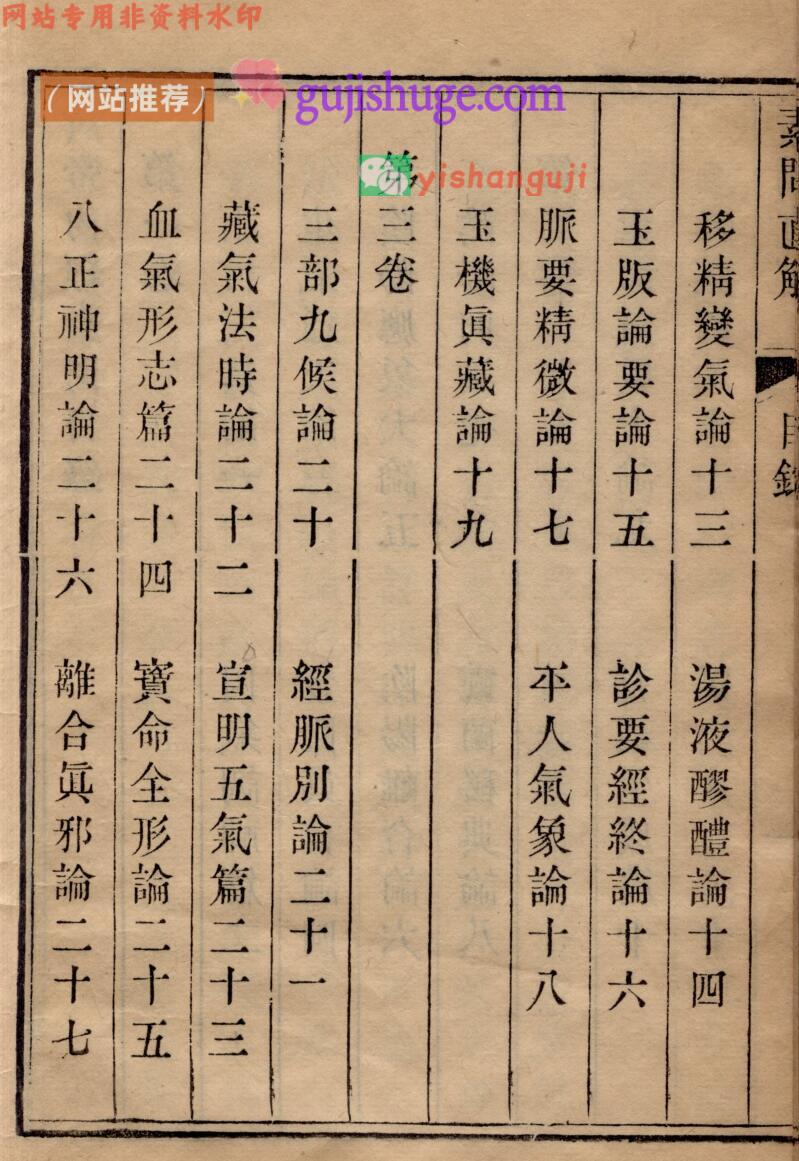 网站专用非资料水印
（网站推荐）
gujishuge.com
yishanguji
素問直解
目錄
移精變氣論十三 湯液醪醴論十四
玉版論要論十五 診要經終論十六
脈要精微論十七 平人氣象論十八
玉機眞藏論十九
第三卷
三部九候論二十 經脈別論二十一
藏氣法時論二十二 宣明五氣篇二十三
血氣形志篇二十四 寶命全形論二十五
八正神明論二十六 離合眞邪論二十七